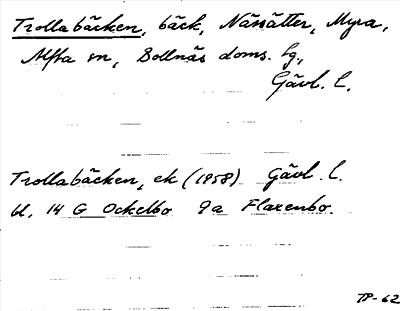 Trollabäcken, bäck, Nässätter, Myra,
Alfta sn, Bollnäs doms. hg.,
Gävl. l.
Trollabäcken, ek (1958) Gävl. l.
bl. 14 G Ockelbo 9a Flaxenbo.
TP-62